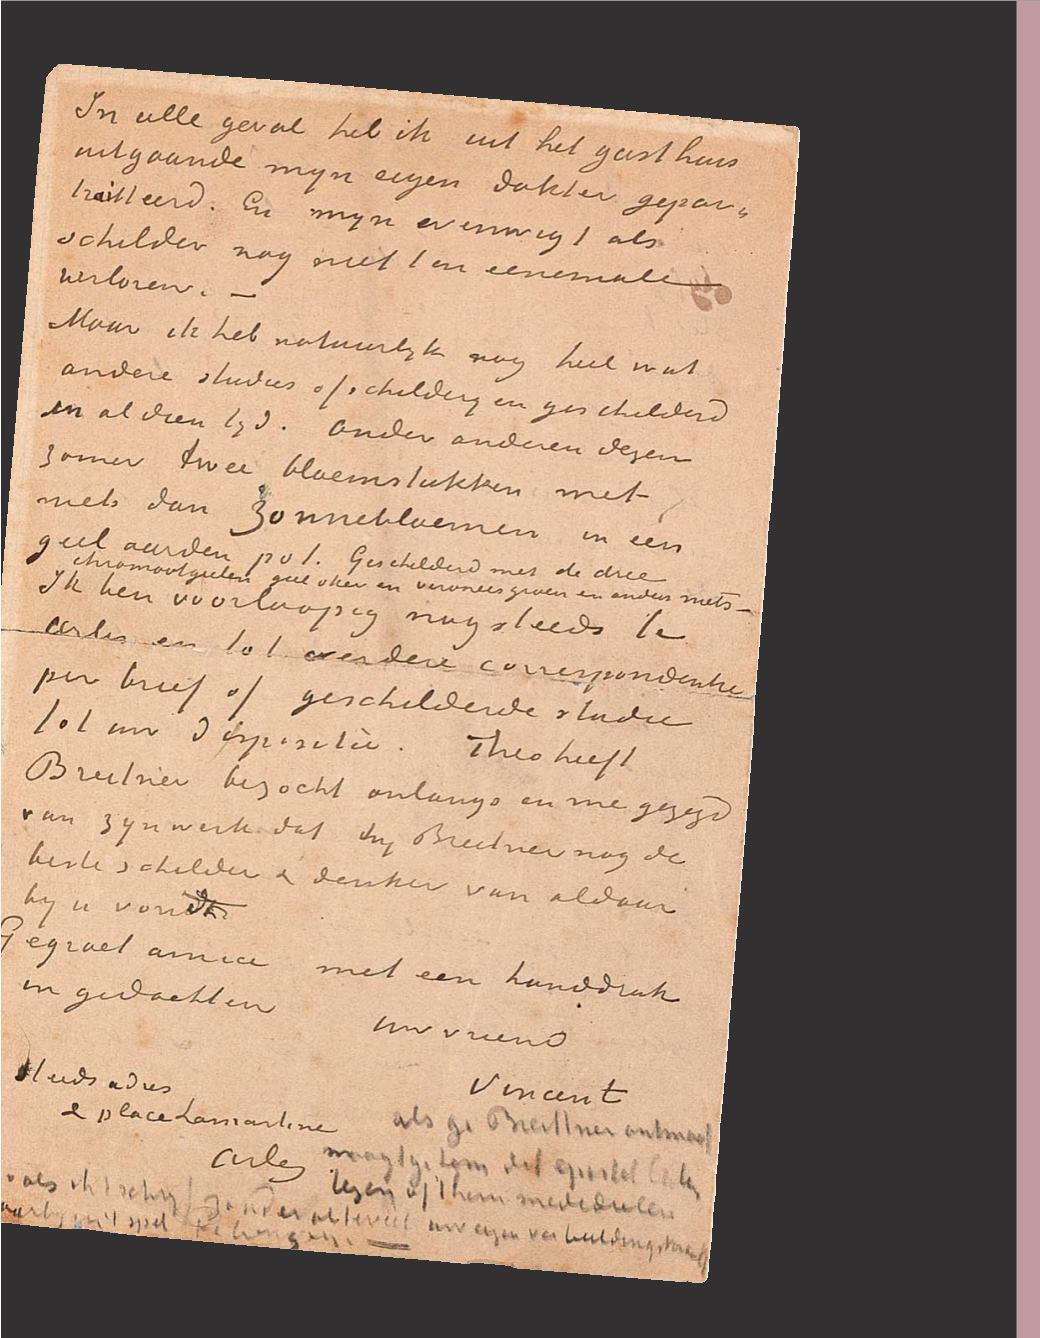 In alle geval heb ik uit het gasthuis
uitgaande myn eigen dokter gepor„
traitteerd. En myn evenwigt als
schilder nog niet ten eenemale
verloren. —
Maar ik heb natuurlyk nog heel wat
andere studies of schilderyen geschilderd
in al dien tyd. Onder anderen dezen
zomer twee bloemstukken met
niets dan Zonnebloemen in een
geel aarden pot. Geschilderd met de drie
chromaatgeelen geel oker en veroneesgroen en anders niets —
Ik ben voorloopig nog steeds te
Arles en tot verdere correspondentie
per brief of geschilderde studie
tot uw dispositie. Theo heeft
Breitner bezocht onlangs en me gezegd
van zyn werk dat hy Breitner nog de
beste schilder & denker van aldaar
by u vond
Gegroet amice met een handdruk
in gedachten
uw vriend
Vincent
Steeds adres
2 place Lamartine
Arles
als ge Breitner ontmoet
moogt ge hem dit epistel laten
lezen of hem mededeelen
als ik schryf zonder al te veel uw eigen verbeeldingskracht
daarby in 't spel te brengen. —